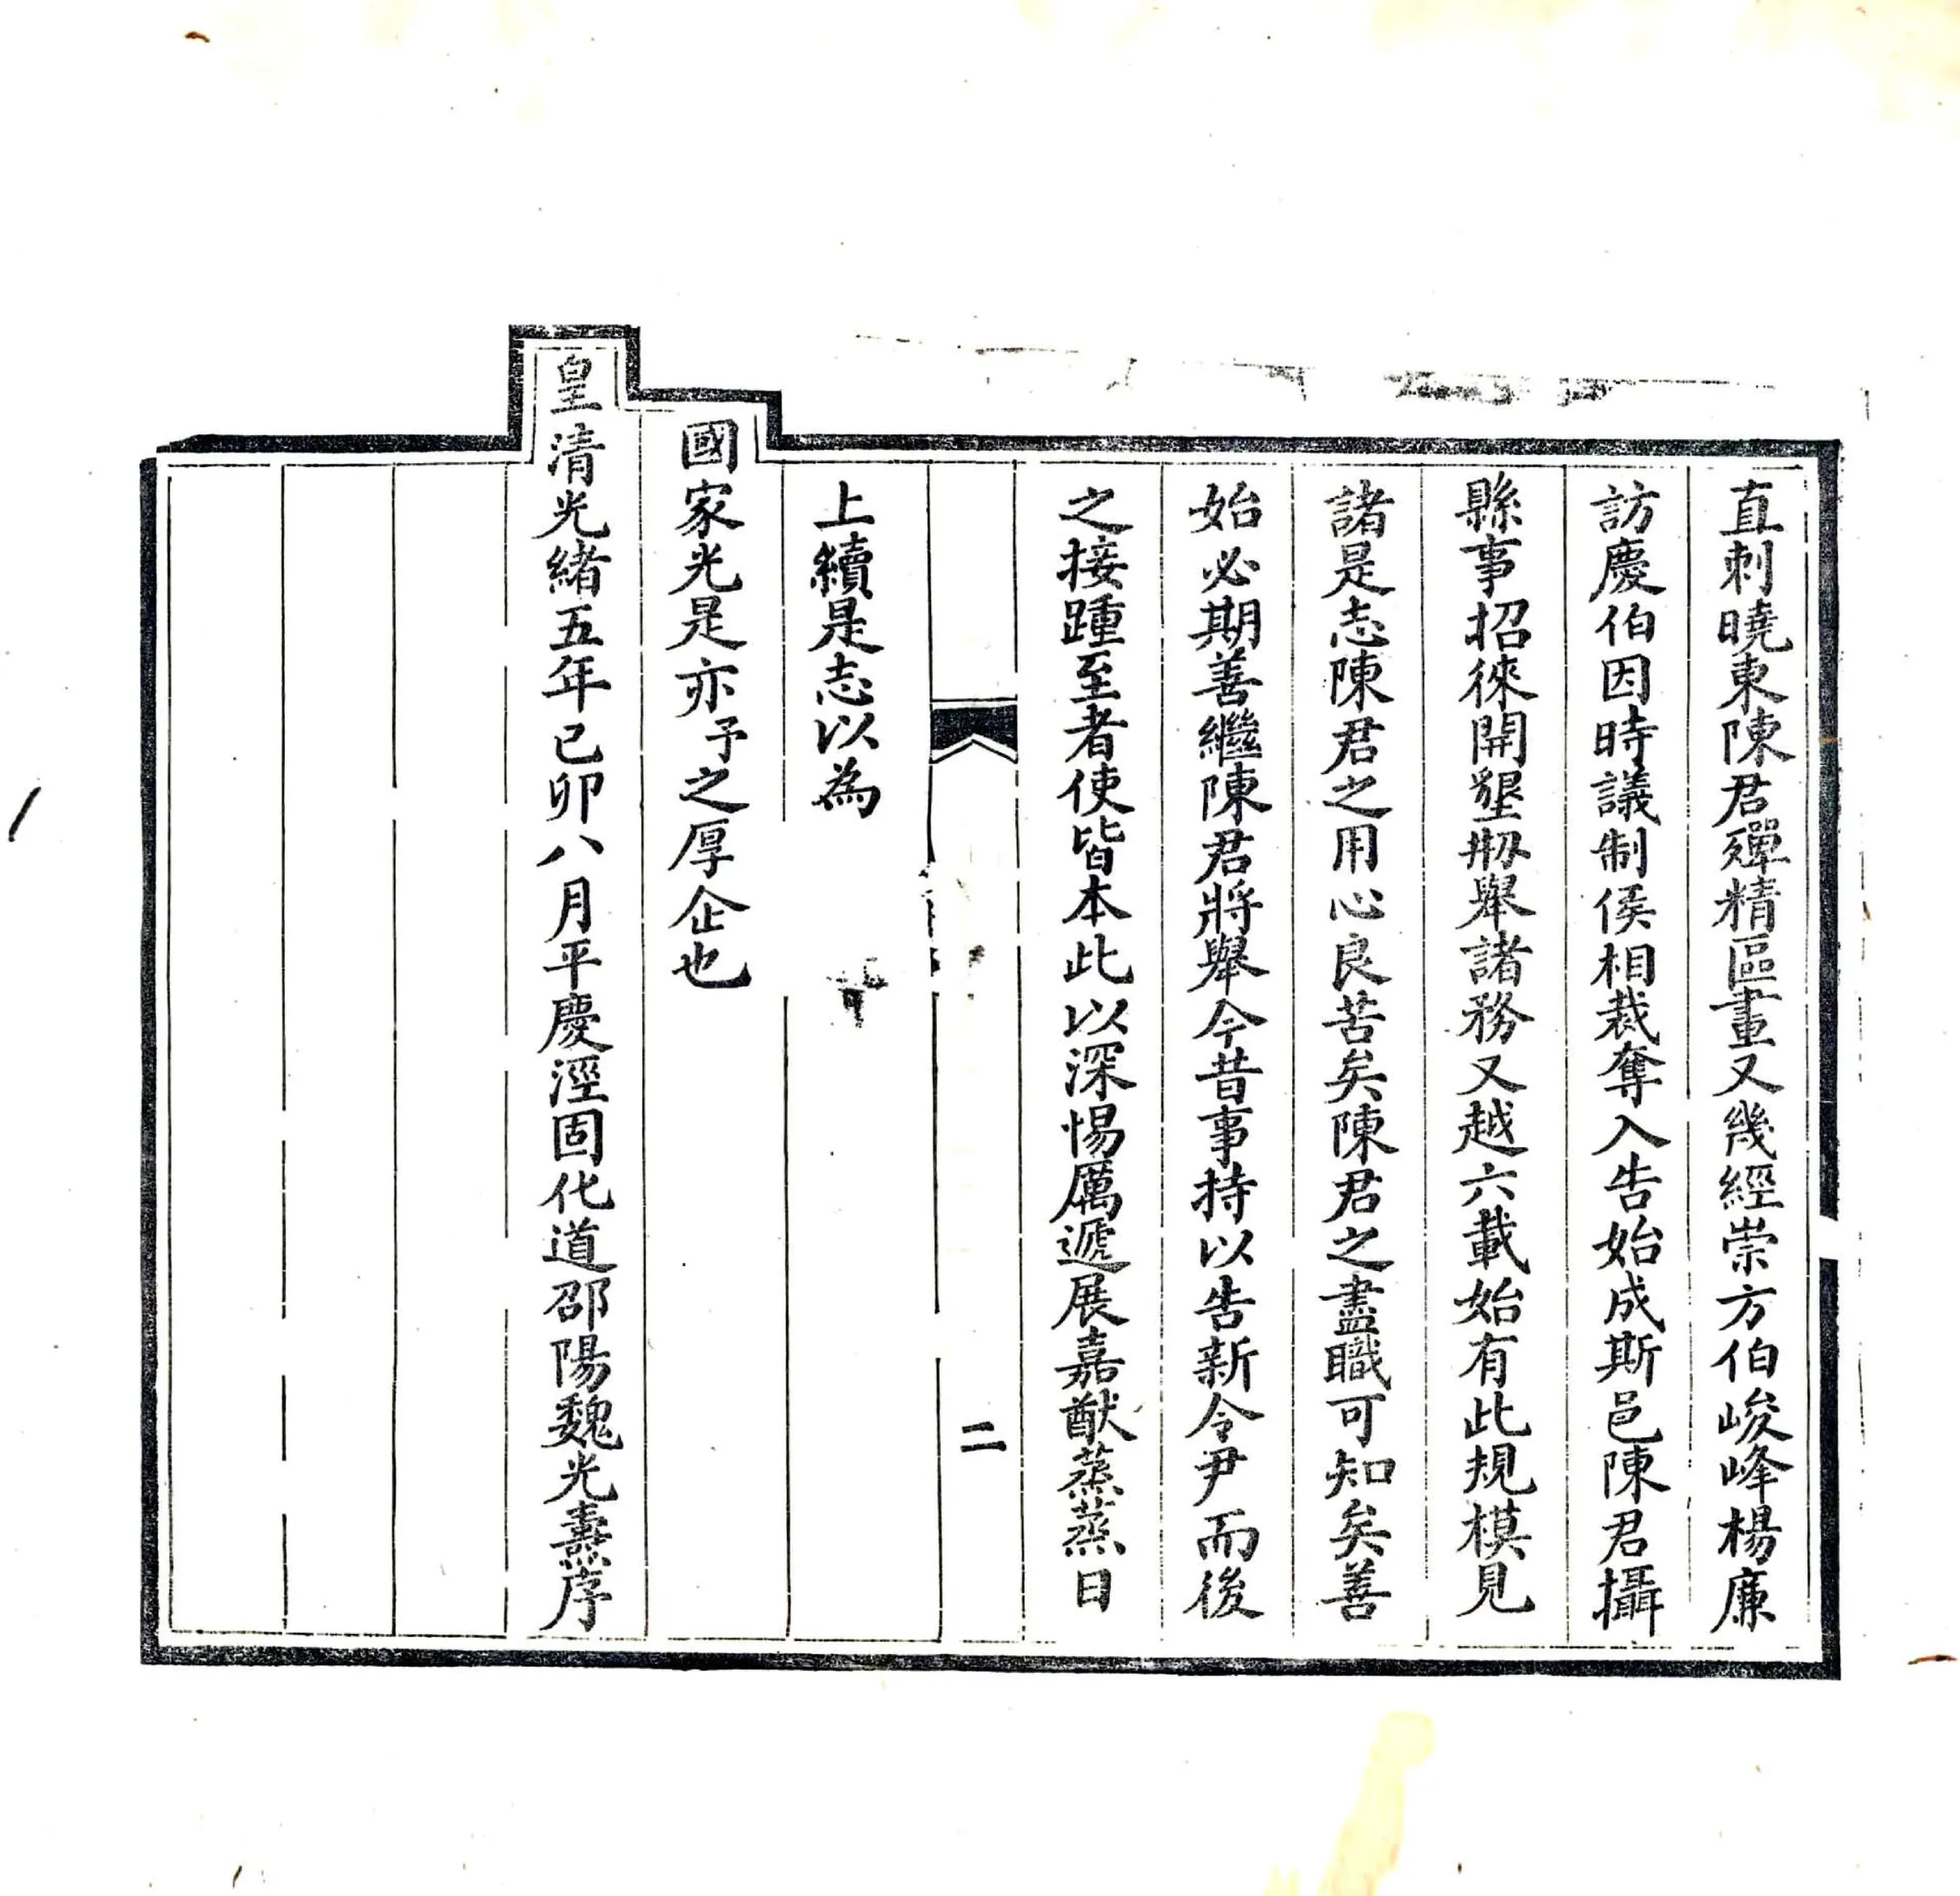 直刺曉東陳君殫精區畫又幾經崇方伯峻峰楊廉
訪慶伯因時議制侯相裁奪入告始成斯邑陳君攝
縣事招徠開墾刱舉諸務又越六載始有此規模見
諸是志陳君之用心良苦矣陳君之盡職可知矣善
始必期善繼陳君將舉今昔事持以告新令尹而後
之接踵至者使皆本此以深惕厲遞展嘉猷蒸蒸日
二
上續是志以為
國家光是亦予之厚企也
皇清光緒五年己卯八月平慶涇固化道邵陽魏光燾序